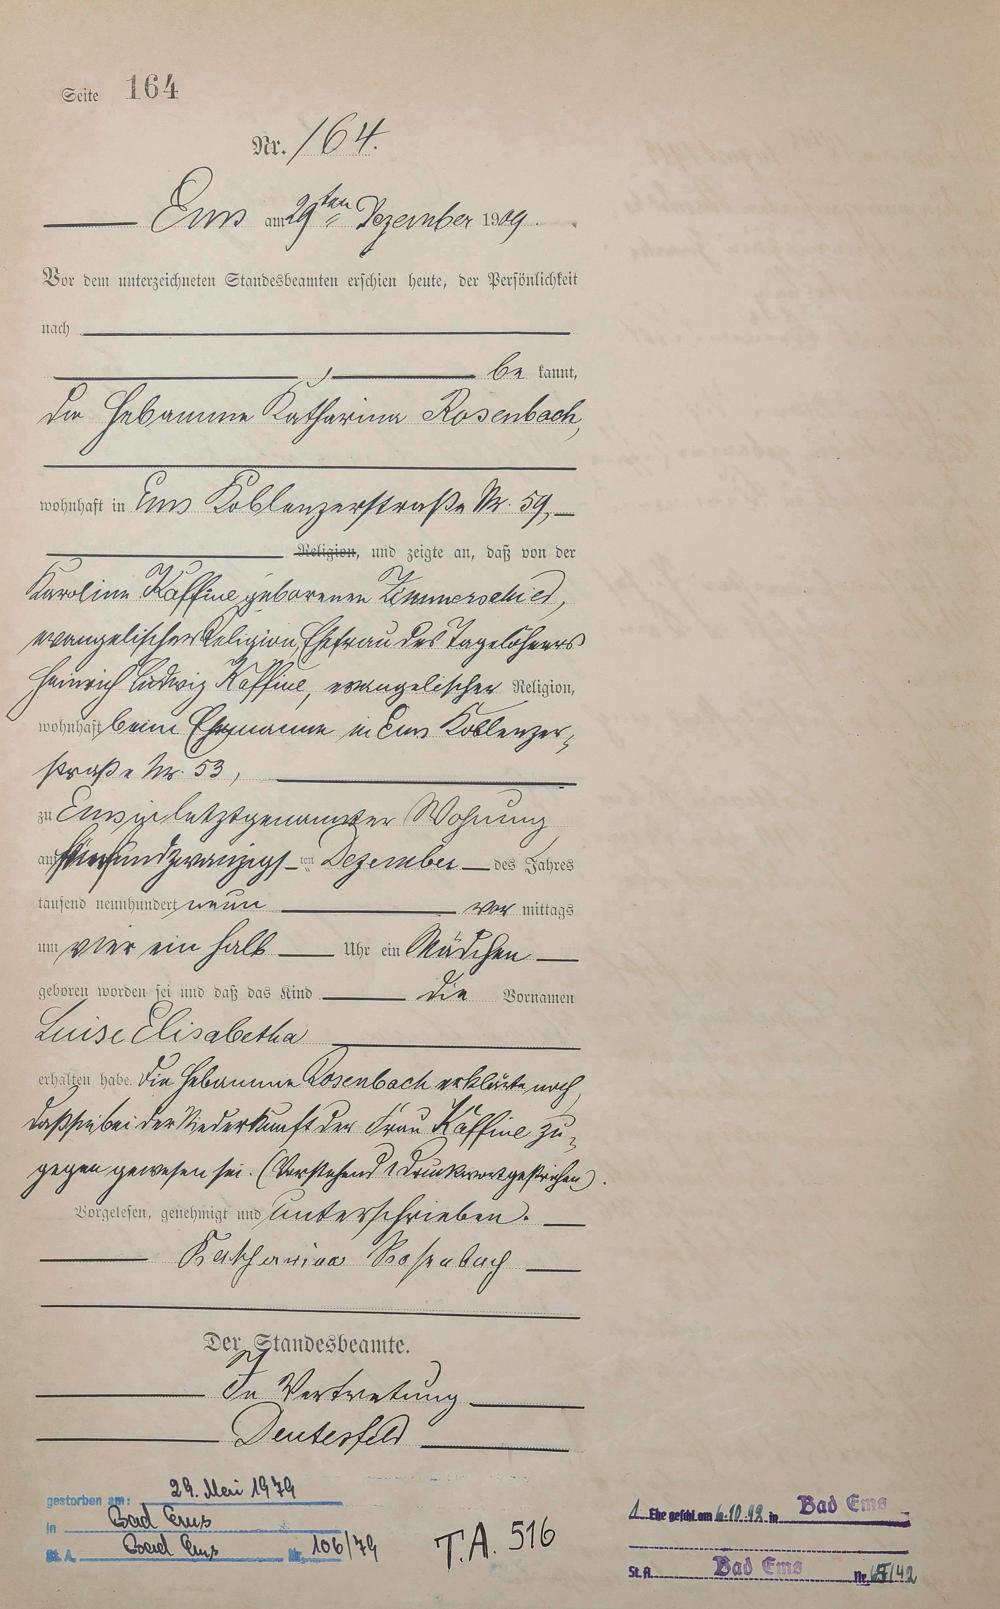 Seite 164
Nr. 164.
Ems am 29ten Dezember 1909.
Vor dem unterzeichneten Standesbeamten erschien heute, der Persönlichkeit
nach
be kannt,
die Hebamme Katharina Rosenbach,
wohnhaft in Ems Koblenzerstraße Nr. 59,
Religion, und zeigte an, daß von der
Karoline Kaffine geborenen Zimmerschied,
evangelischer Religion, Ehefrau des Tagelöhners
Heinrich Ludwig Kaffine, evangelischer Religion,
wohnhaft beim Ehemanne in Ems Koblenzer-
straße Nr. 53,
zu Ems in letztgenannter Wohnung
am undzwanzigsten Dezember des Jahres
tausend neunhundert neun vor mittags
um vier ein halb Uhr ein Mädchen
geboren worden sei und daß das Kind die Vornamen
Luise Elisabetha
erhalten habe. Die Hebamme Rosenbach erklärte noch,
daß sie bei der Niederkunft der Frau Kaffine zu-
gegen gewesen sei. (Vorstehend 1 Druckwort gestrichen).
Vorgelesen, genehmigt und unterschrieben.
Katharina Rosenbach
Der Standesbeamte.
In Vertretung
gestorben am: 29. Mai 1979
in Bad Ems
St. A. Bad Ems Nr. 106/79
T.A. 516
1. Ehe geschl. am 6.10.42 in Bad Ems
St. A. Bad Ems Nr. /42